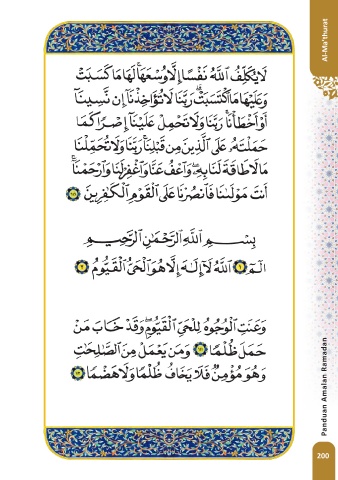 لَا يُكَلِّفُ ٱللَّهُ نَفْسًا إِلَّا وُسْعَهَا ۚ لَهَا مَا كَسَبَتْ
وَعَلَيْهَا مَا ٱكْتَسَبَتْ ۗ رَبَّنَا لَا تُؤَاخِذْنَآ إِن نَّسِينَآ
أَوْ أَخْطَأْنَا ۚ رَبَّنَا وَلَا تَحْمِلْ عَلَيْنَآ إِصْرًا كَمَا
حَمَلْتَهُۥ عَلَى ٱلَّذِينَ مِن قَبْلِنَا ۚ رَبَّنَا وَلَا تُحَمِّلْنَا
مَا لَا طَاقَةَ لَنَا بِهِۦ ۖ وَٱعْفُ عَنَّا وَٱغْفِرْ لَنَا وَٱرْحَمْنَآ ۚ
أَنتَ مَوْلَىٰنَا فَٱنصُرْنَا عَلَى ٱلْقَوْمِ ٱلْكَـٰفِرِينَ ٢٨٦
بِسْمِ ٱللَّهِ ٱلرَّحْمَـٰنِ ٱلرَّحِيمِ
الٓمٓ ١ ٱللَّهُ لَآ إِلَـٰهَ إِلَّا هُوَ ٱلْحَىُّ ٱلْقَيُّومُ ٢
وَعَنَتِ ٱلْوُجُوهُ لِلْحَىِّ ٱلْقَيُّومِ ۖ وَقَدْ خَابَ مَنْ
حَمَلَ ظُلْمًا ١١١ وَمَن يَعْمَلْ مِنَ ٱلصَّـٰلِحَـٰتِ
وَهُوَ مُؤْمِنٌ فَلَا يَخَافُ ظُلْمًا وَلَا هَضْمًا ١١٢
Al-Ma'thurat
Panduan Amalan Ramadan
200